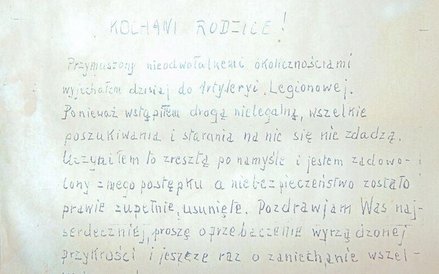 KOCHANI RODZICE!
Przymuszony nieodwołalnemi okolicznościami
wyjechałem dzisiaj do Artyleryi Legionowej.
Ponieważ wstąpiłem drogą nielegalną, wszelkie
poszukiwania i starania na nic się nie zdadzą.
Uczyniłem to zresztą po namyśle i jestem zadowo-
lony z mego postępku a niebezpieczeństwo zostało
prawie zupełnie, usunięte. Pozdrawiam Was naj-
serdeczniej, proszę o przebaczenie wyrządzonej
przykrości i jeszcze raz o zaniechanie wszel-